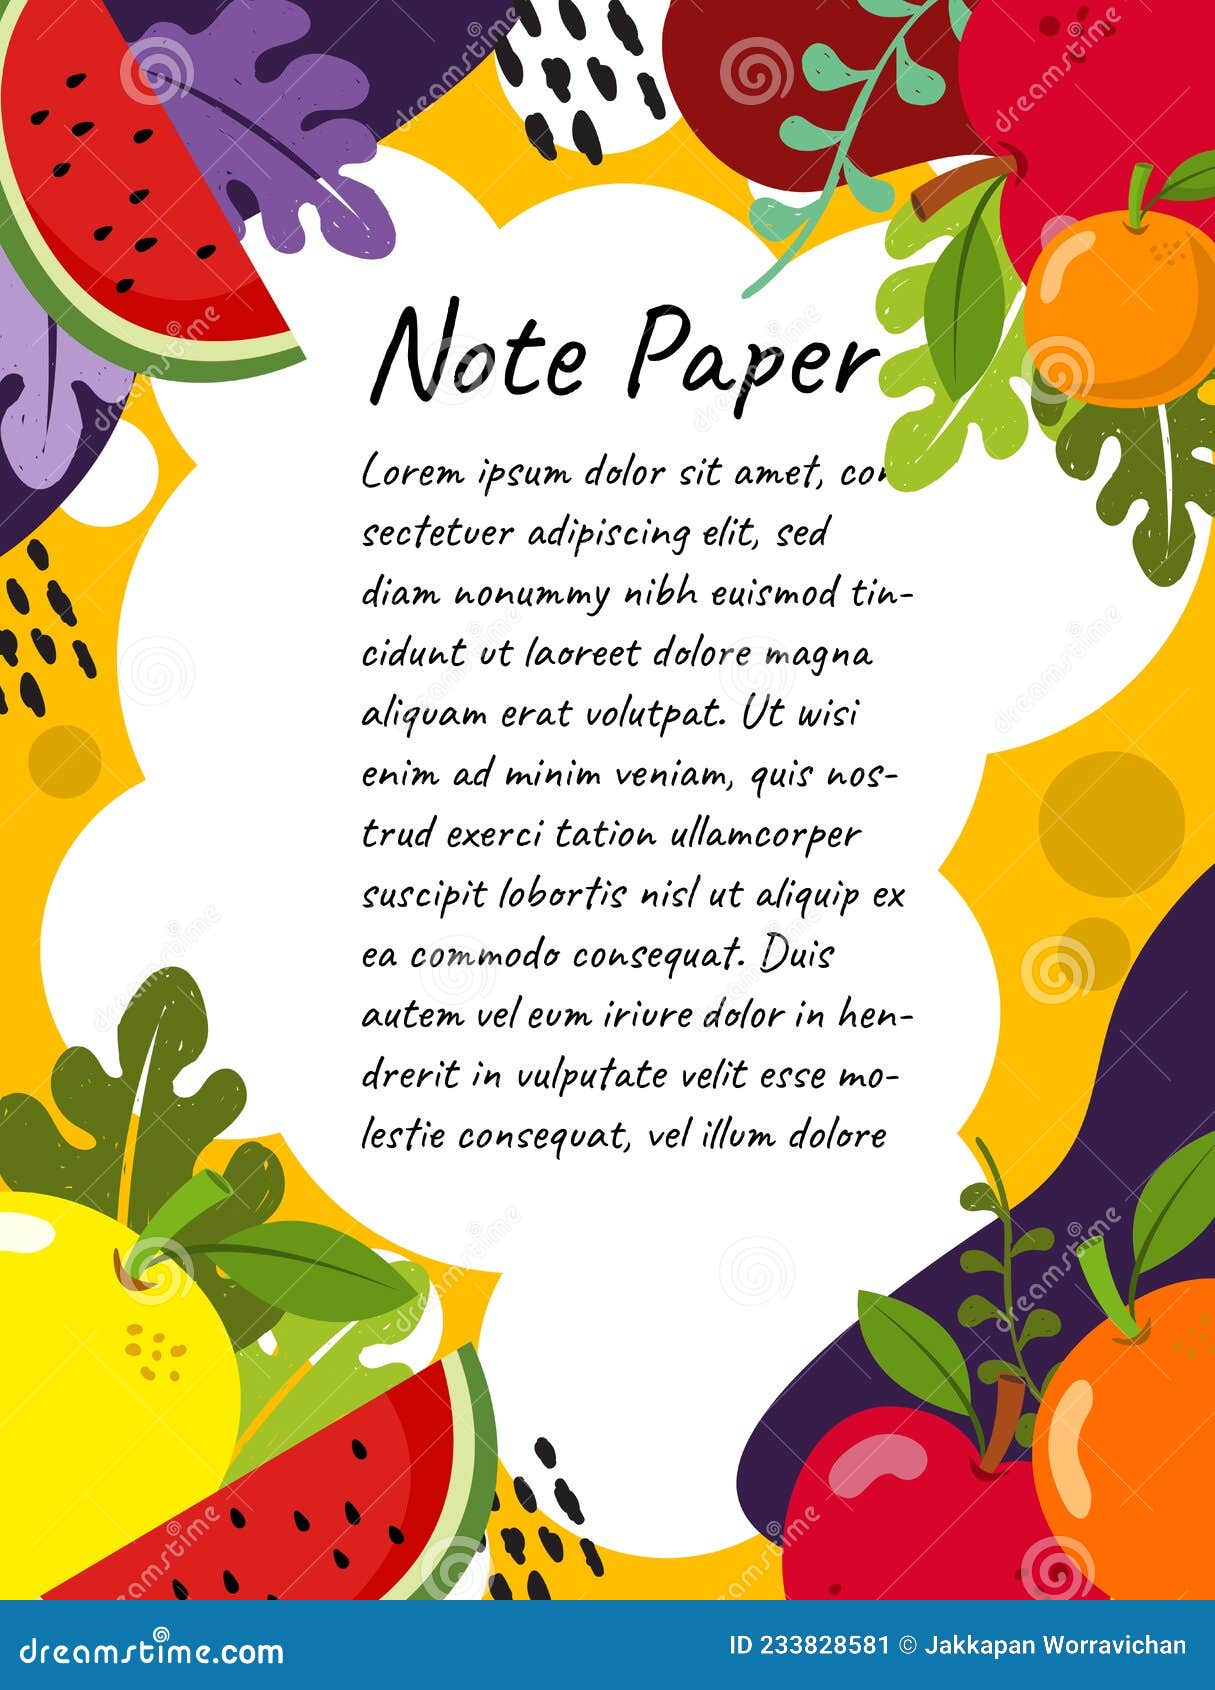 Note Paper
Lorem ipsum dolor sit amet, con
sectetuer adipiscing elit, sed
diam nonummy nibh euismod tin-
cidunt ut laoreet dolore magna
aliquam erat volutpat. Ut wisi
enim ad minim veniam, quis nos-
trud exerci tation ullamcorper
suscipit lobortis nisl ut aliquip ex
ea commodo consequat. Duis
autem vel eum iriure dolor in hen-
drerit in vulputate velit esse mo-
lestie consequat, vel illum dolore
dreamstime.com
ID 233828581 © Jakkapan Worravichan